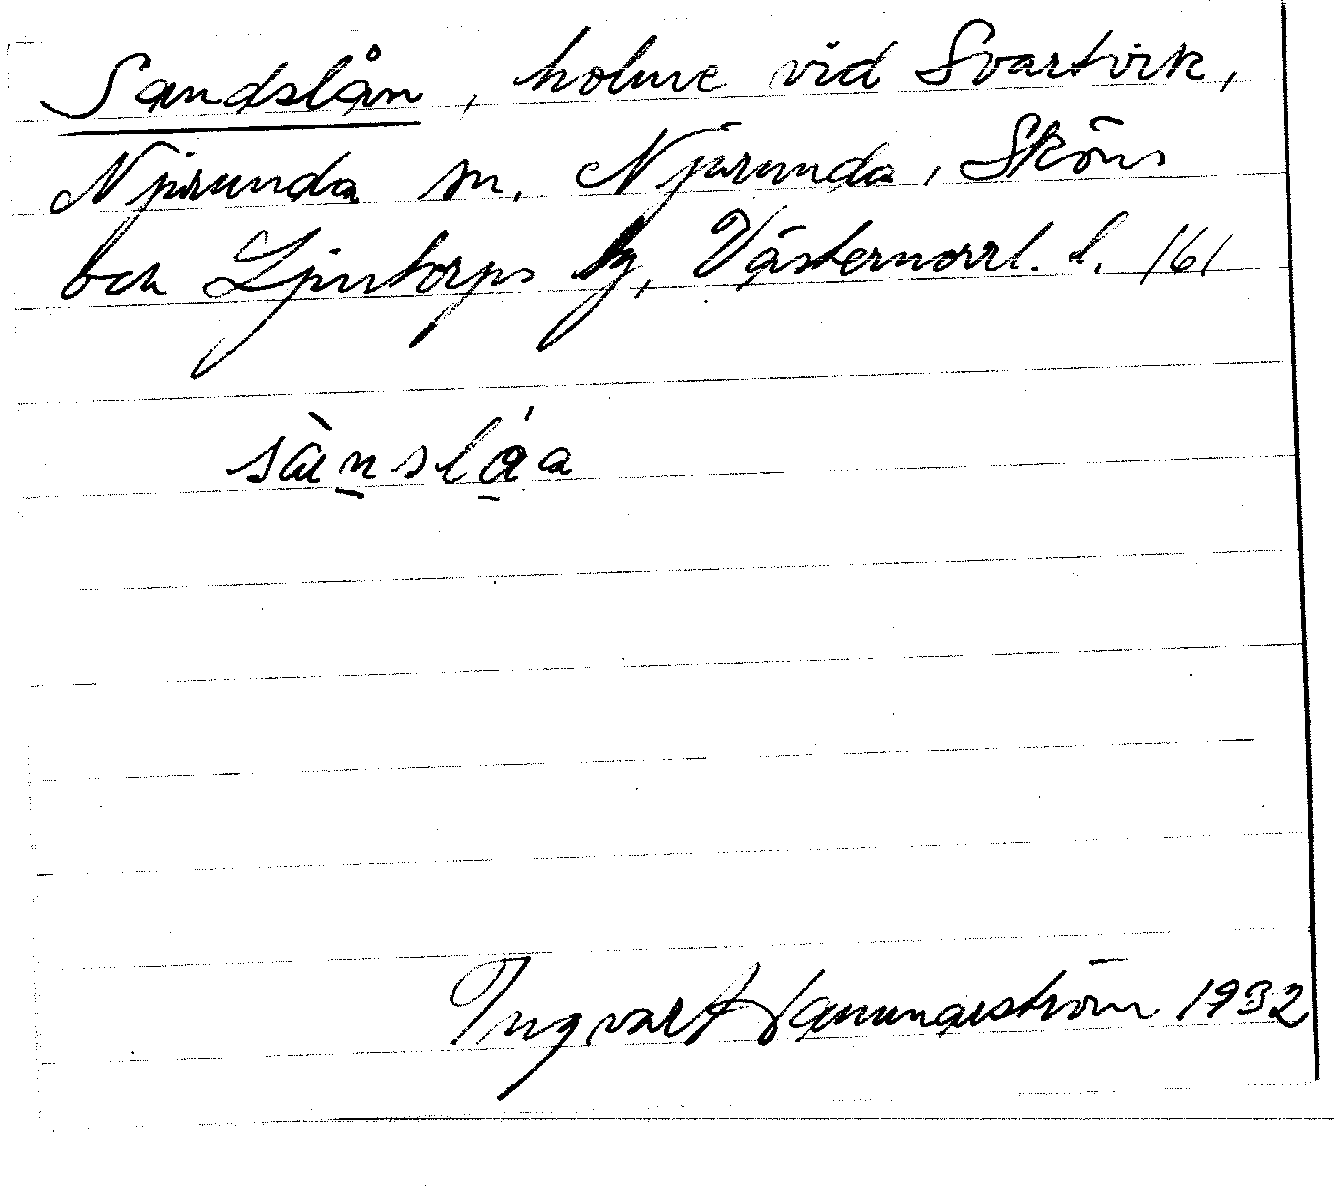 Sandslån, holme vid Svartvik,
Njurunda sn. Njurunda, Sköns
och Ljustorps tg, Västernorrl. l. 161
sànslá̱a
Ingvar Hammarström 1932